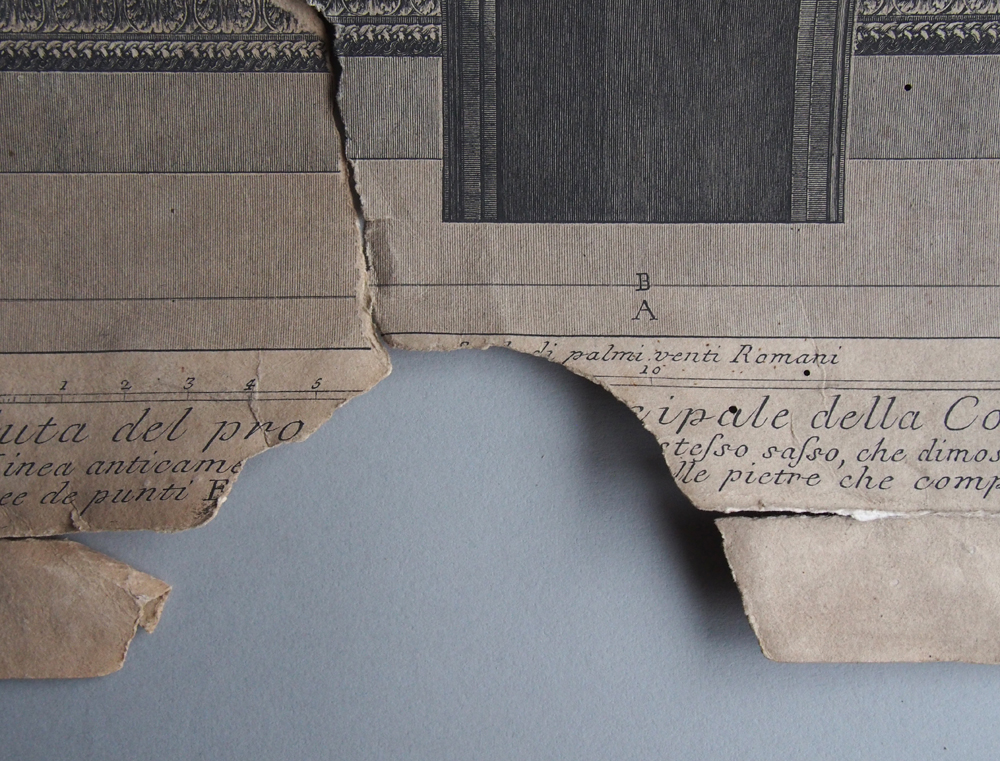 B
A
di palmi venti Romani
1 2 3 4 5 10
uta del pro cipale della Co
inea anticame steſso saſso, che dimos
ee de punti F lle pietre che comp